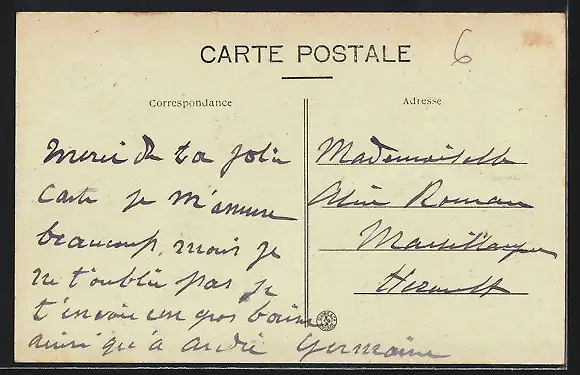 CARTE POSTALE
6
Correspondance
Adresse
Merci de ta jolie
carte je m'amuse
beaucoup, mais je
ne t'oublie pas je
t'envoie un gros
ainsi qu'à Germaine
Mademoiselle
Roman
Marsillargues
Hérault